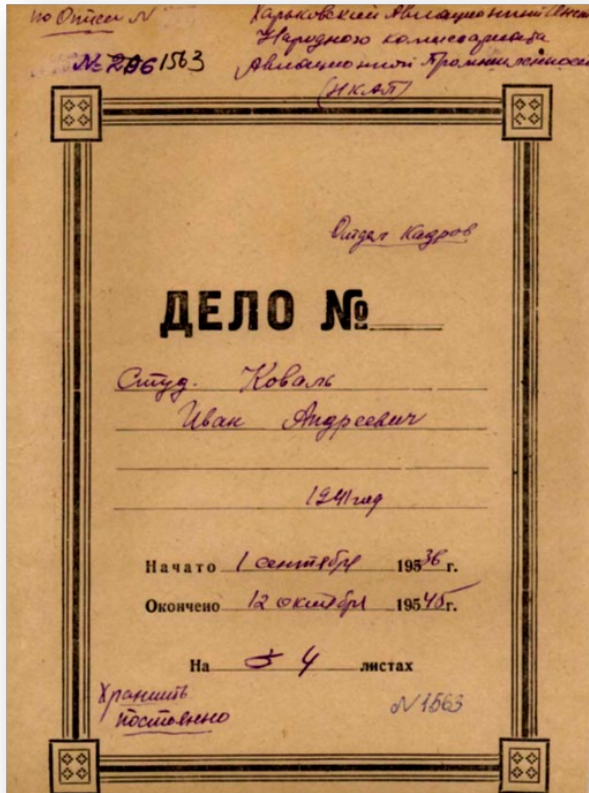 по Описи №
Харьковский Авиационный Инст
Народного комиссариата
№ 206 1563
Авиационной Промышленности
(НКАП)
Отдел Кадров
ДЕЛО №
Студ. Коваль
Иван Андреевич
1941 год
Начато 1 сентября 195 36 г.
Окончено 12 октября 195 45 г.
На 4 листах
Хранить
постоянно
N 1563